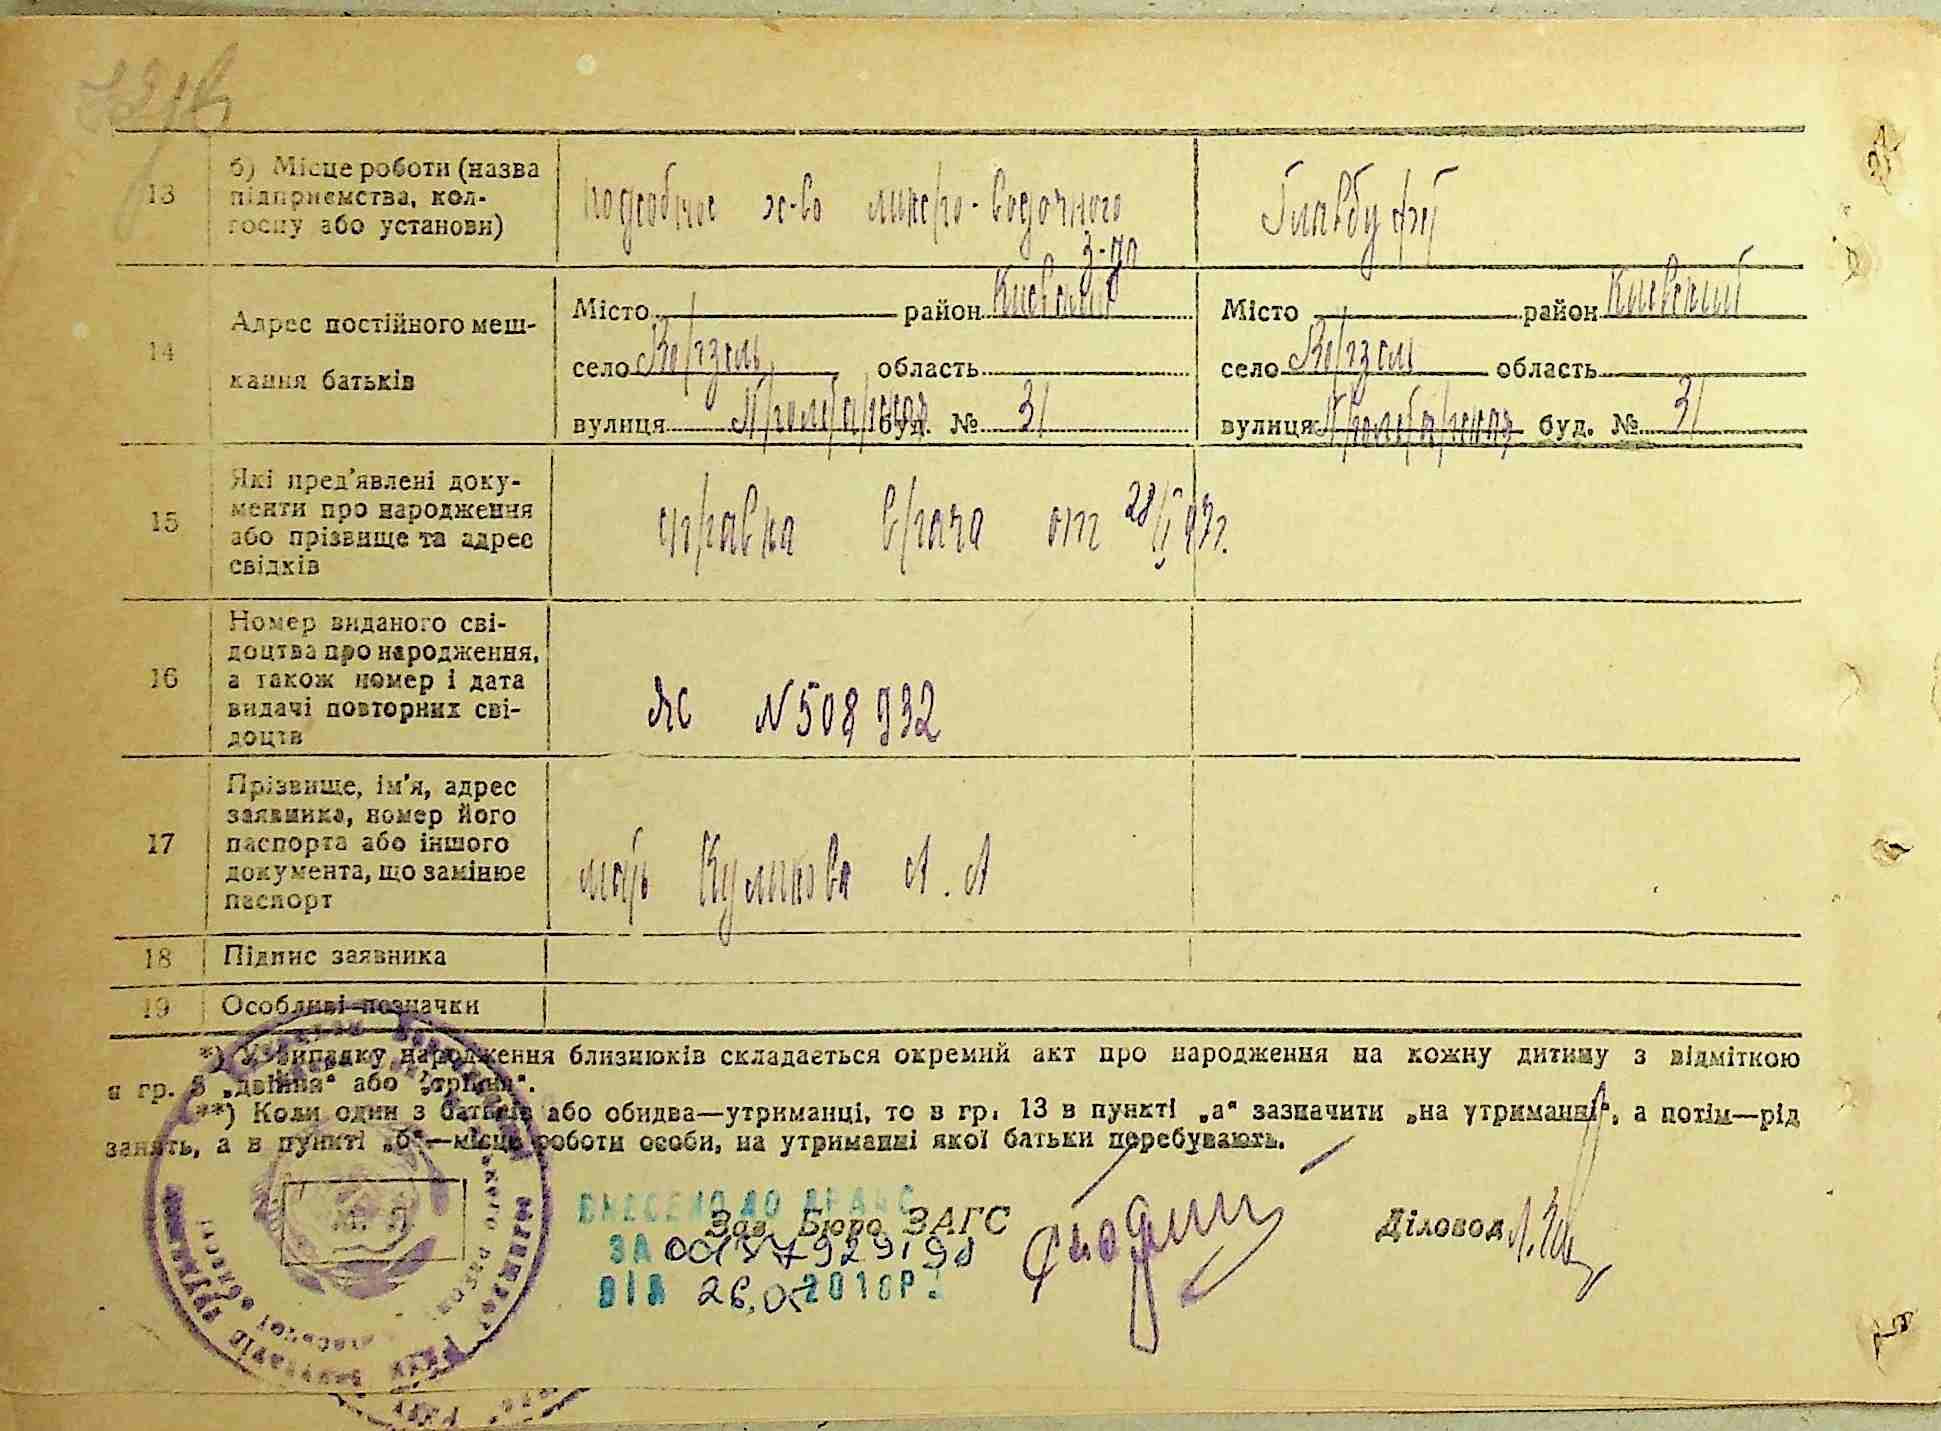 13
б) Місце роботи (назва
підприємства, кол-
госпу або установи)
подсобное х-во ликеро-водочного
з-да
14
Адрес постійного меш-
кання батьків
Місто район Киевский
село Ворзель область
вулиця Пролетарская буд. № 31
Місто район Киевский
село Ворзель область
вулиця Пролетарская буд. № 31
15
Які пред'явлені доку-
менти про народження
або прізвище та адрес
свідків
справка врача от 28
16
Номер виданого сві-
доцтва про народження,
а також номер і дата
видачі повторних сві-
доцтв
ЯС N 508932
17
Прізвище, ім'я, адрес
заявника, номер його
паспорта або іншого
документа, що замінює
паспорт
мать Куликова А. А
18
Підпис заявника
19
Особливі позначки
*) У випадку народження близнюків складається окремий акт про народження на кожну дитину з відміткою
в гр. 8 „двійня" або „трійня".
**) Коли один з батьків або обидва—утриманці, то в гр. 13 в пункті „а" зазначити „на утриманні", а потім—рід
занять, а в пункті „б"—місце роботи особи, на утриманні якої батьки перебувають.
ВНЕСЕНО ДО ДРАЦС
Зав. Бюро ЗАГС
Діловод
ЗА
ВІД 26.05 2016Р.